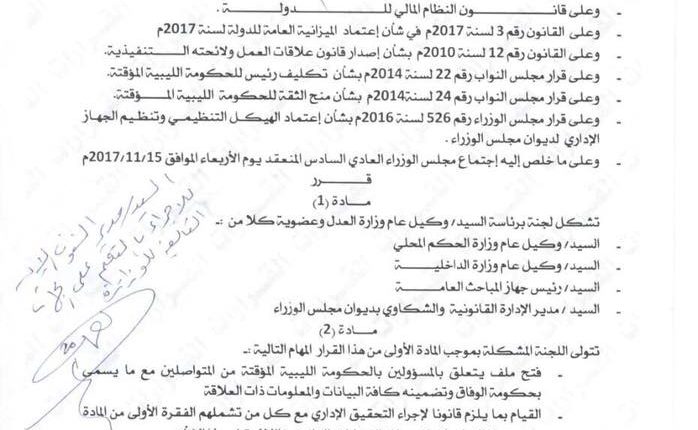 - وعلى قانـــون النظام المالي للـــــدولـــة .
- وعلى القانون رقم 3 لسنة 2017م في شأن إعتماد الميزانية العامة للدولة لسنة 2017م
- وعلى القانون رقم 12 لسنة 2010م بشأن إصدار قانون علاقات العمل ولائحته التنفيذية.
- وعلى قرار مجلس النواب رقم 22 لسنة 2014م بشأن تكليف رئيس للحكومة الليبية المؤقتة.
- وعلى قرار مجلس النواب رقم 24 لسنة 2014م بشأن منح الثقة للحكومة الليبية المـؤقتة.
- وعلى قرار مجلس الوزراء رقم 526 لسنة 2016م بشأن إعتماد الهيكل التنظيمي وتنظيم الجهاز
الإداري لديوان مجلس الوزراء .
- وعلى ما خلص إليه إجتماع مجلس الوزراء العادي السادس المنعقد يوم الأربعاء الموافق 2017/11/15م
قـــرر
مــادة (1)
تشكل لجنة برئاسة السيد/ وكيل عام وزارة العدل وعضوية كلا من :-
- السيد/ وكيل عام وزارة الحكم المحلي
- السيد/ وكيل عام وزارة الداخليـــة
- السيد/ رئيس جهاز المباحث العامــة
- السيد / مدير الإدارة القانونية والشكاوي بديوان مجلس الوزراء
مــادة (2)
تتولى اللجنة المشكلة بموجب المادة الأولى من هذا القرار المهام التالية :-
- فتح ملف يتعلق بالمسؤولين بالحكومة الليبية المؤقتة من المتواصلين مع ما يسمى
بحكومة الوفاق وتضمينه كافة البيانات والمعلومات ذات العلاقة
- القيام بما يلزم قانونا لإجراء التحقيق الإداري مع كل من تشملهم الفقرة الأولى من المادة
السيد/ مدير الشؤون
للإجراء بالتعميم على
التابعة للوزارة